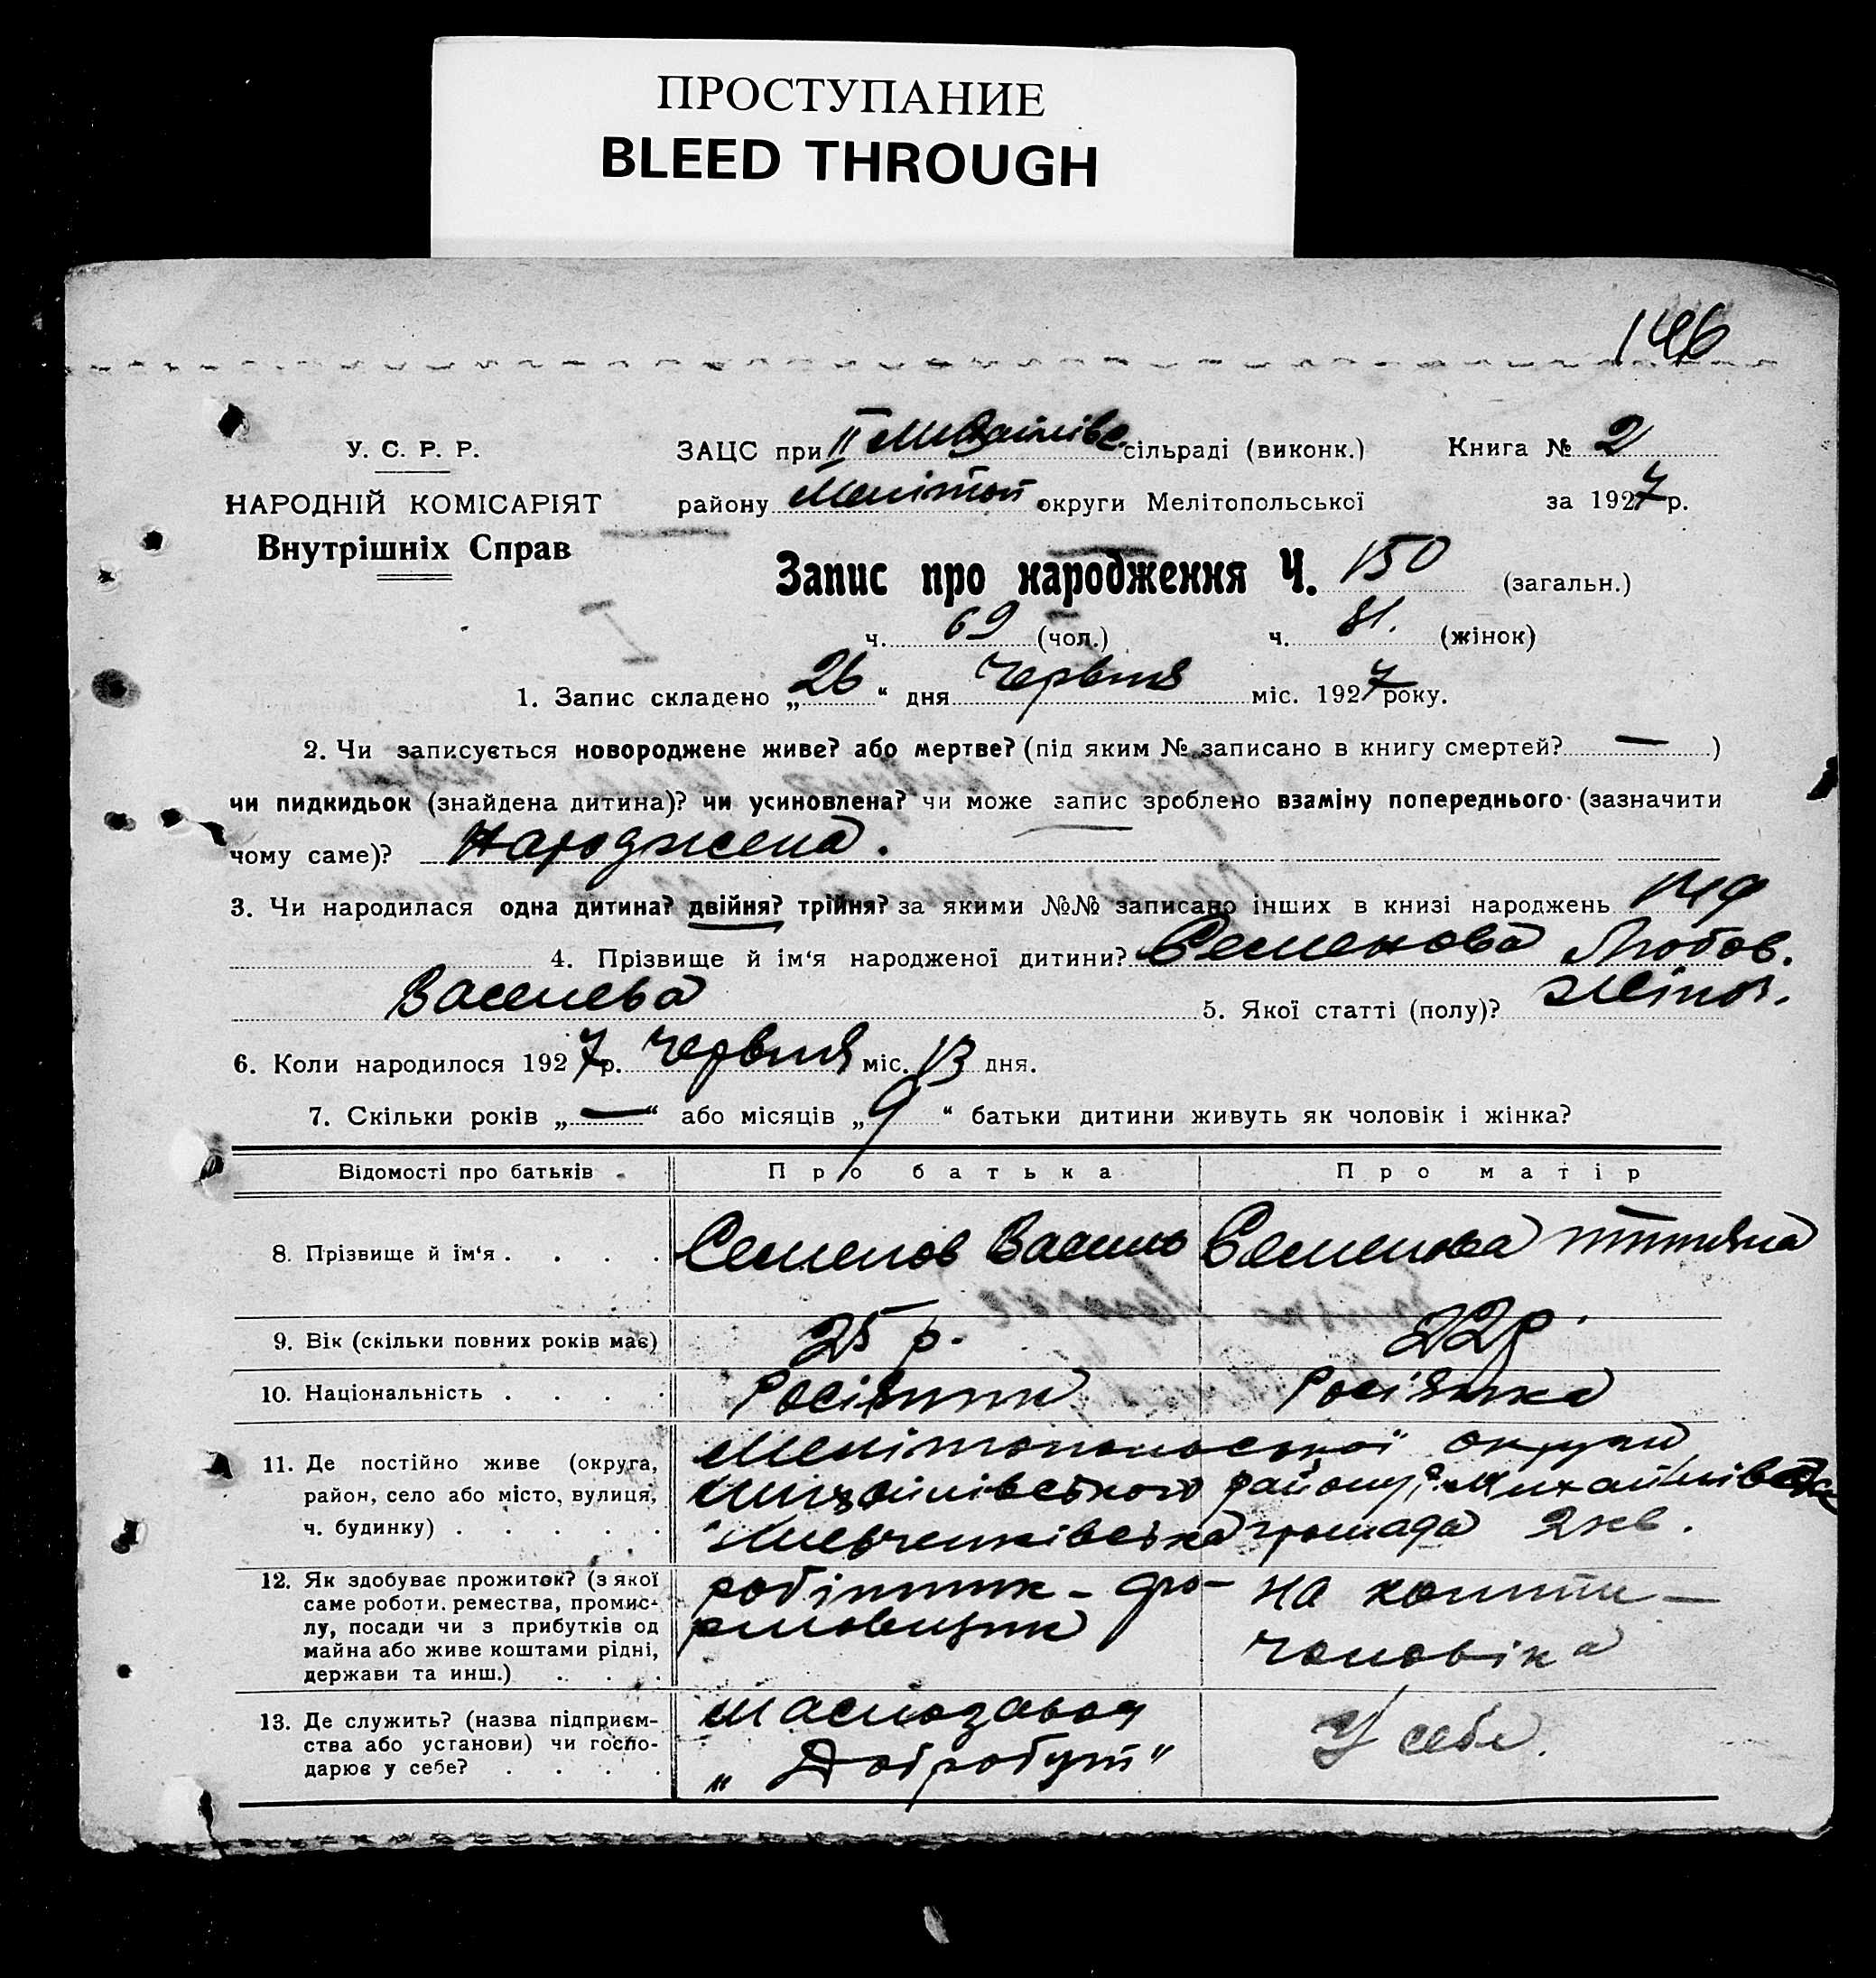 ПРОСТУПАНИЕ
BLEED THROUGH
146
У. С. Р. Р.
НАРОДНІЙ КОМІСАРІЯТ
Внутрішніх Справ
ЗАЦС при II Михайлівс. сільраді (виконк.) Книга № 2
району Мелітоп округи Мелітопольської за 1927 р.
Запис про народження Ч. 150 (загальн.)
ч. 69 (чол.) ч. 81. (жінок)
1. Запис складено „26“ дня Червня міс. 1927 року.
2. Чи записується новороджене живе? або мертве? (під яким № записано в книгу смертей? — )
чи пидкидьок (знайдена дитина)? чи усиновлена? чи може запис зроблено взаміну попереднього (зазначити
чому саме)? Народжена.
3. Чи народилася одна дитина? двійня? трійня? за якими №№ записано інших в книзі народжень 149
4. Прізвище й ім‘я народженої дитини? Семенова Любов.
Васильева 5. Якої статті (полу)? жіноч.
6. Коли народилося 1927 р. Червня міс. 13 дня.
7. Скільки років „—“ або місяців „9“ батьки дитини живуть як чоловік і жінка?
Відомості про батьків Про батька Про матір
8. Прізвище й ім‘я . . . . Семенов Василь Семенова Тітяна
9. Вік (скільки повних років має) 25 р. 22 р.
10. Національність . . . . Росіянин Росіянка
11. Де постійно живе (округа, Мелітопольської округи
район, село або місто, вулиця, Михайлівського району, с. Михайлівка
ч. будинку) . . . . . Шевченківська громада 2 кв.
12. Як здобуває прожиток? (з якої
саме роботи. ремества, промис-
лу, посади чи з прибутків од
майна або живе коштами рідні,
держави та инш.) . . . .
робітник - фо-
рмовщик
на кошти —
чоловіка
13. Де служить? (назва підприєм-
ства або установи) чи госпо-
дарює у себе? . . . .
Маслозавод
„Добробут“
У себе.